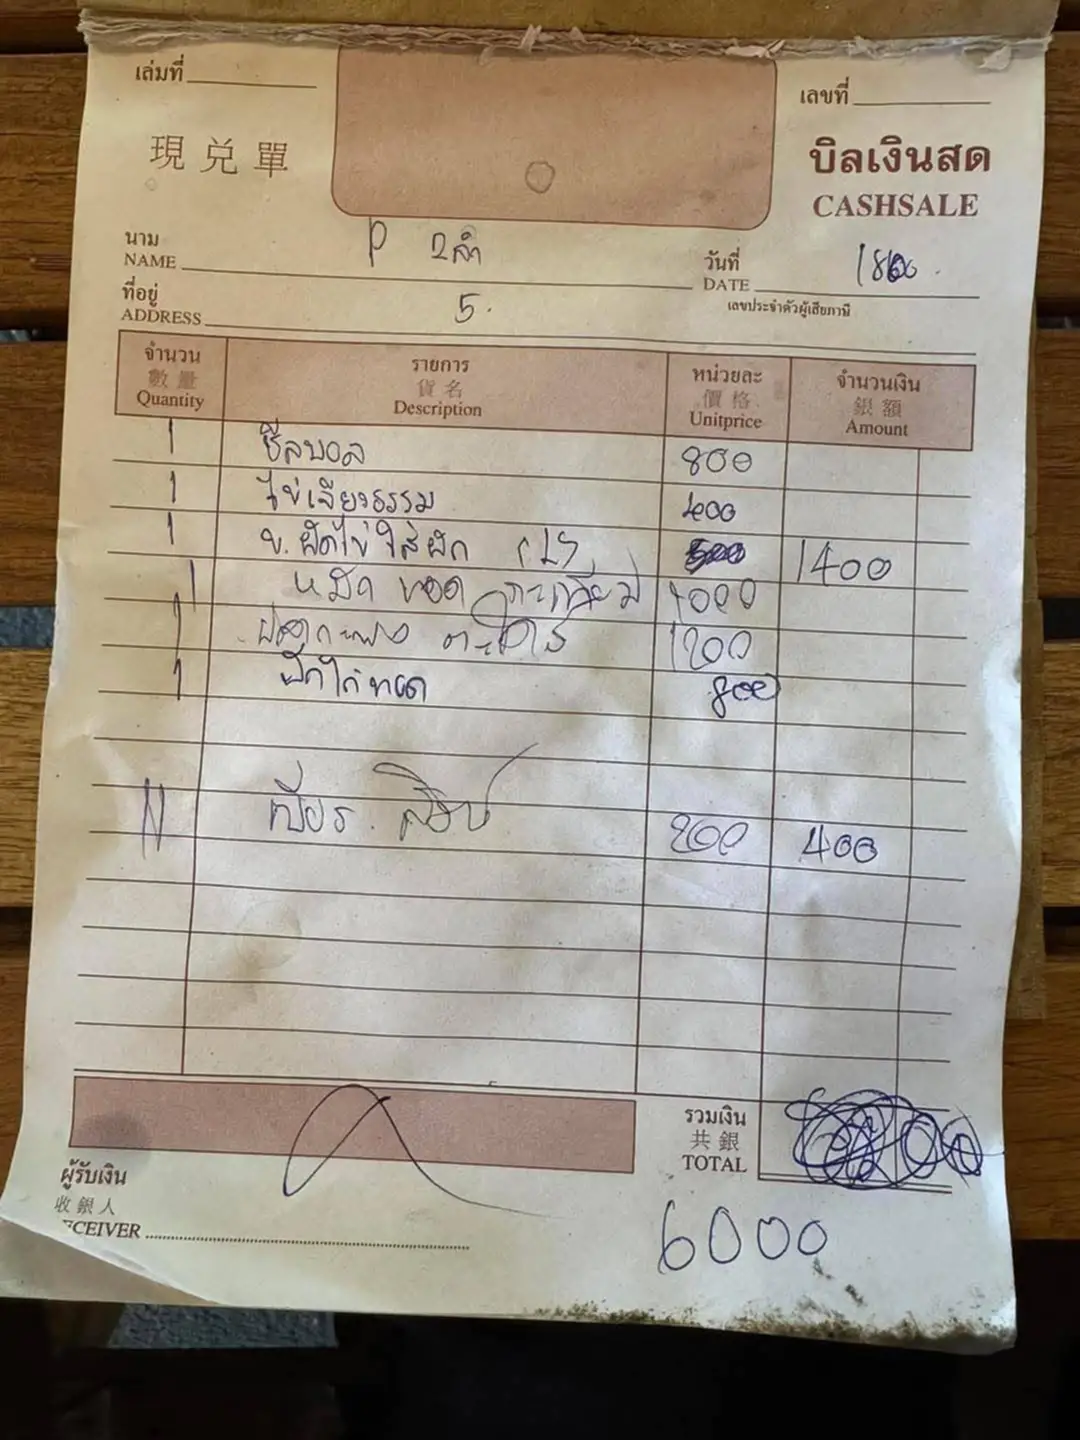 เล่มที่
เลขที่
現兑單
บิลเงินสด
CASHSALE
นาม
NAME
P 2ลำ
วันที่
DATE
ที่อยู่
ADDRESS
5.
เลขประจำตัวผู้เสียภาษี
จำนวน 數量 Quantity
รายการ 貨名 Description
หน่วยละ 價格 Unitprice
จำนวนเงิน 銀額 Amount
1 ซีลบอล 800
1 ไข่เจียวธรรม 400
1 ข. ผัดไข่ ใส่ผัก 1400
1 หมึก ทอด กะเทียม 1000
1 1200
1 ปีกไก่ทอด 800
เบียร สิงห์ 200 400
รวมเงิน
共銀
TOTAL
ผู้รับเงิน
收銀人
ECEIVER
6000